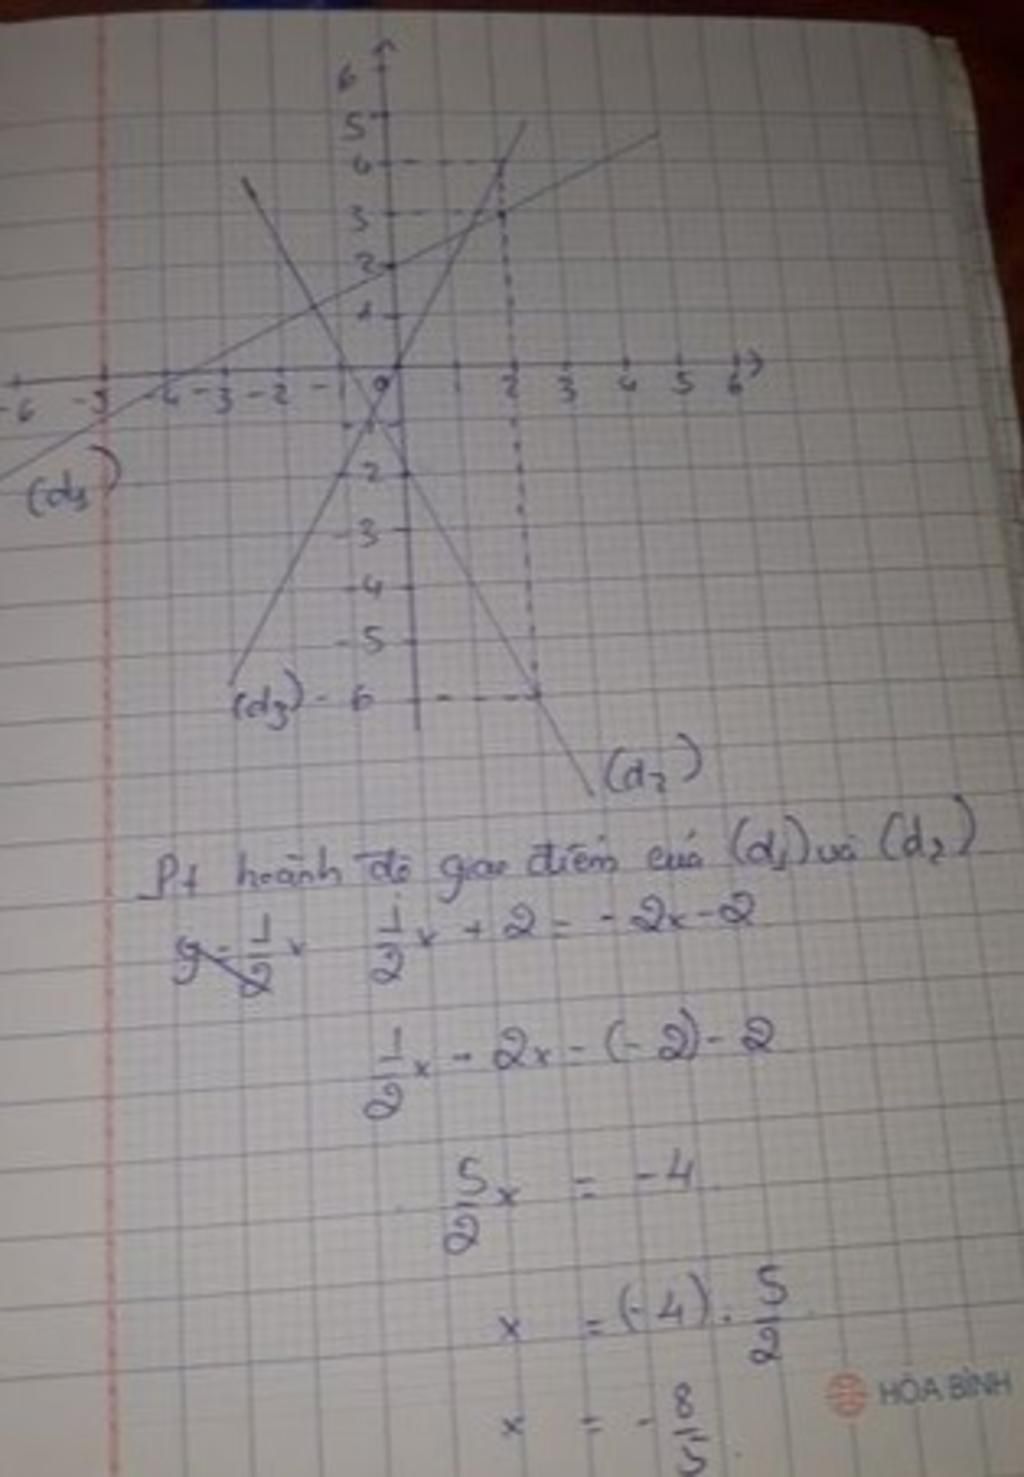 6
5
4
3
2
1
-6 -5 -4 -3 -2 - 0 2 3 4 5 6
-2
(d1)
-3
-4
-5
(d3) - 6
(d2)
Pt hoành độ giao điểm của (d1) và (d2)
1/2 x + 2 = - 2x - 2
1/2 x - 2x = (-2) - 2
5/2 x = -4
x = (-4) . 5/2
x = - 8/5
HÒA BÌNH